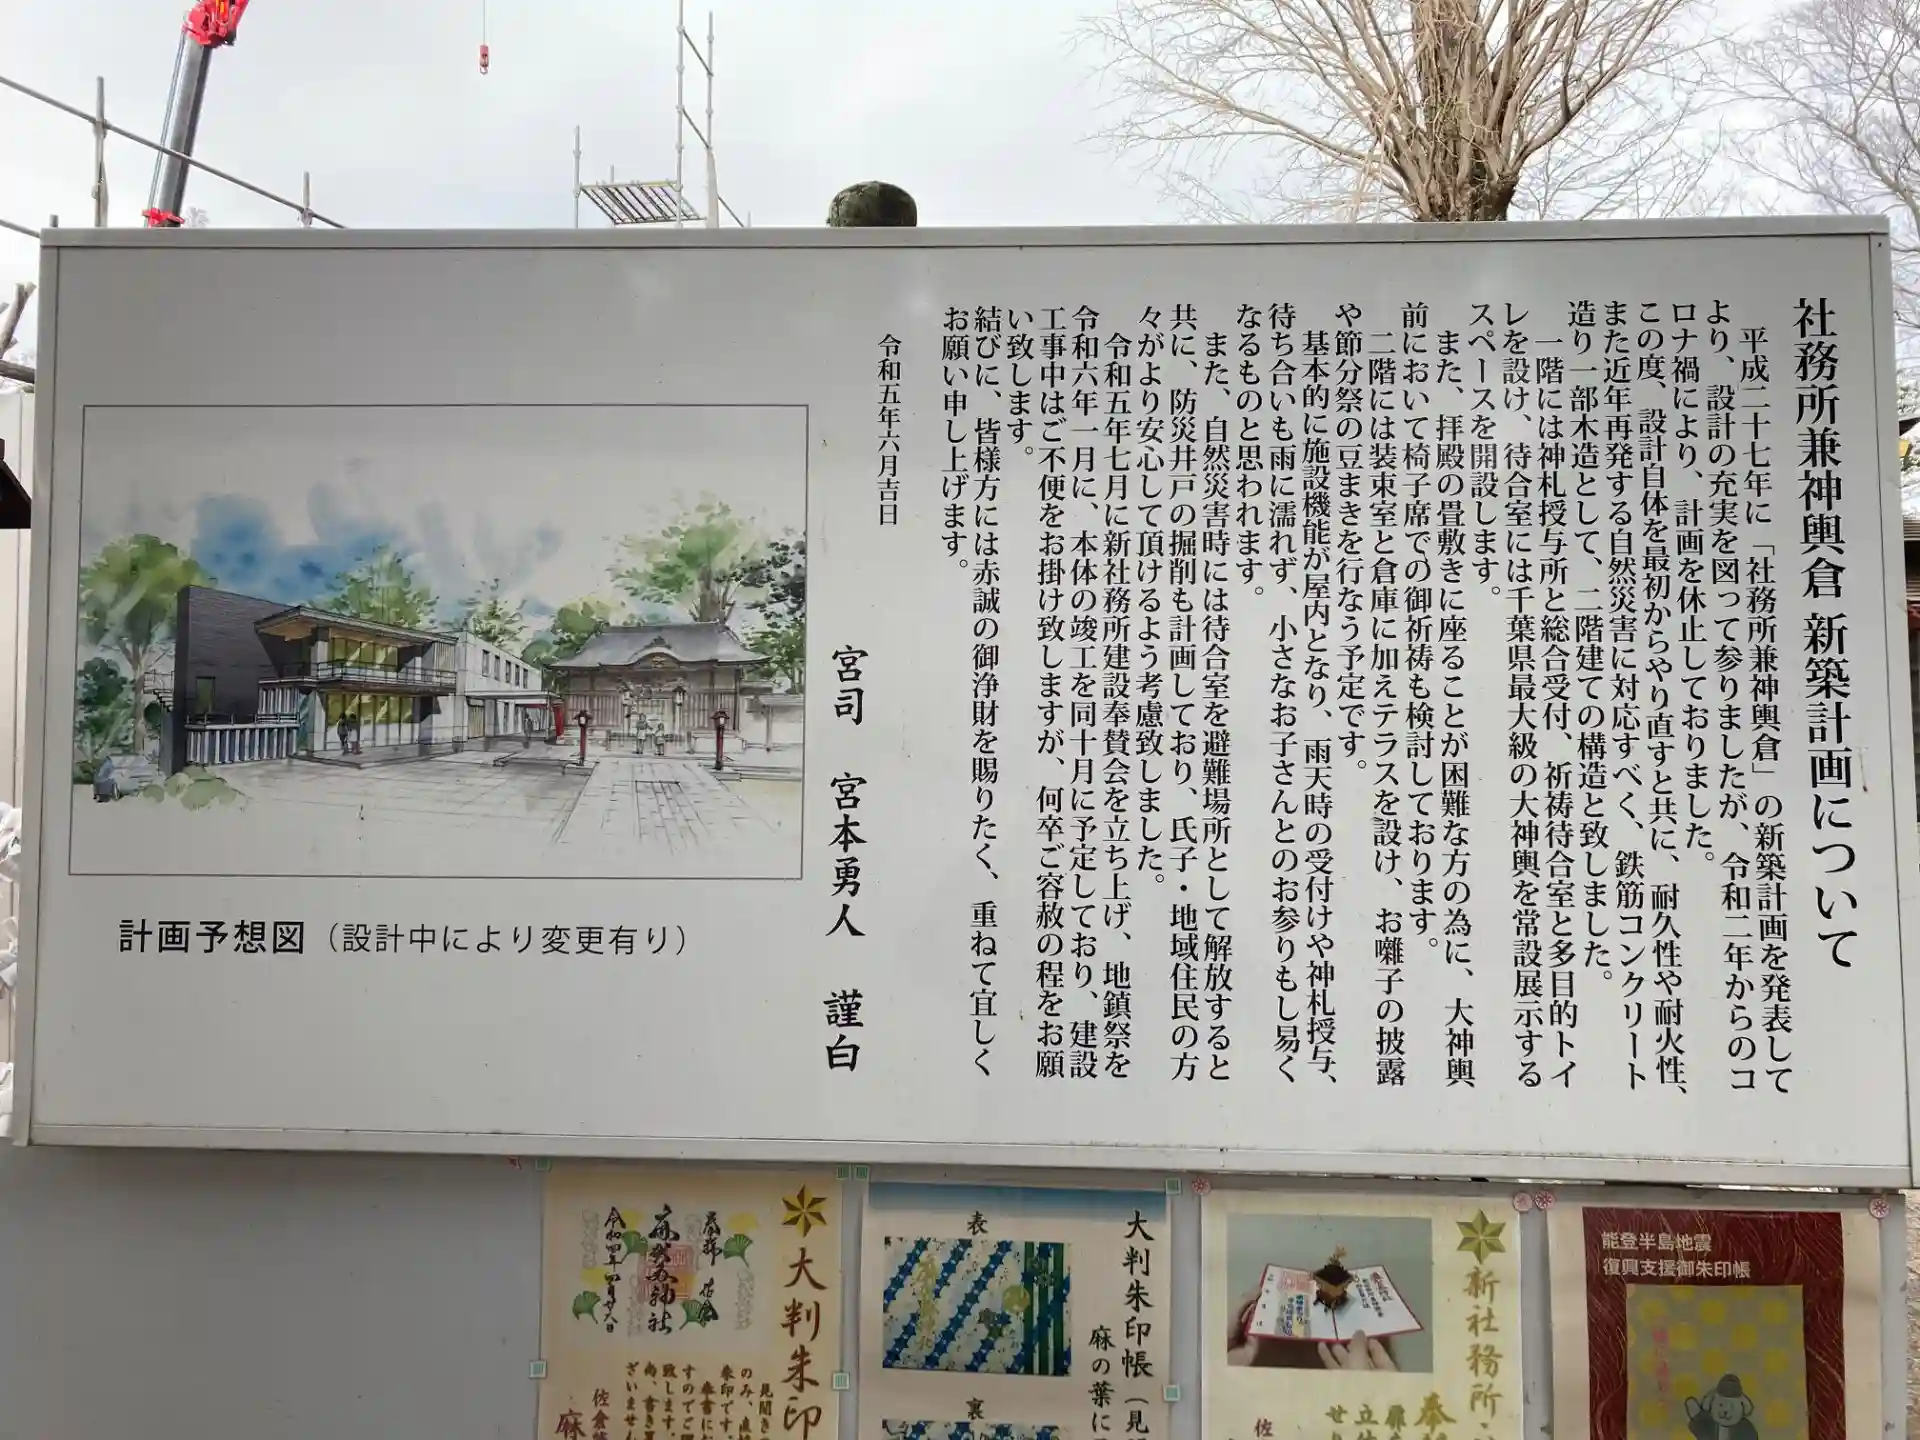 社務所兼神輿倉 新築計画について
平成二十七年に「社務所兼神輿倉」の新築計画を発表して
より、設計の充実を図って参りましたが、令和二年からのコ
ロナ禍により、計画を休止しておりました。
この度、設計自体を最初からやり直すと共に、耐久性や耐火性、
また近年再発する自然災害に対応すべく、鉄筋コンクリート
造り一部木造として、二階建ての構造と致しました。
一階には神札授与所と総合受付、祈祷待合室と多目的トイ
レを設け、待合室には千葉県最大級の大神輿を常設展示する
スペースを開設します。
また、拝殿の畳敷きに座ることが困難な方の為に、大神輿
前において椅子席での御祈祷も検討しております。
二階には装束室と倉庫に加えテラスを設け、お囃子の披露
や節分祭の豆まきを行なう予定です。
基本的に施設機能が屋内となり、雨天時の受付けや神札授与、
待ち合いも雨に濡れず、小さなお子さんとのお参りもし易く
なるものと思われます。
また、自然災害時には待合室を避難場所として解放すると
共に、防災井戸の掘削も計画しており、氏子・地域住民の方
々がより安心して頂けるよう考慮致しました。
令和五年七月に新社務所建設奉賛会を立ち上げ、地鎮祭を
令和六年一月に、本体の竣工を同十月に予定しており、建設
工事中はご不便をお掛け致しますが、何卒ご容赦の程をお願
い致します。
結びに、皆様方には赤誠の御浄財を賜りたく、重ねて宜しく
お願い申し上げます。
令和五年六月吉日
宮司 宮本勇人 謹白
計画予想図（設計中により変更有り）
大判朱印
奉拝 佐倉
麻賀多神社
令和四年四月廿八日
見開き
のみ、直
朱印です。
奉書にお
すのでご
致します。
尚、書き
ざいません
佐倉
麻
大判朱印帳（見
麻の葉に
表
裏
新社務所
奉
立体
せ
佐
能登半島地震
復興支援御朱印帳